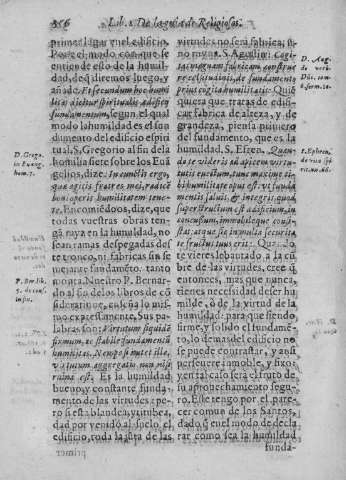 156 Lib. 1. De la guia de Religiosos.
primer lugar en el edificio.
Por el modo con que se
entiende esto de la humil
dad, de q̃ diremos luego, y
añade. Et secundum hoc humil
itas dicitur spiritualis ædificij
fundamentum, segun el qual
modo la humildad es el fun
damento del edificio espiri
tual. S. Gregorio al fin de la
homilia siete sobre los Euã
gelios, dize. In cunctis ergo,
quæ agitis fratres mei, radicẽ
boni operis humilitatem tene-
te. Encomẽdoos, dize, que
todas vuestras obras ten-
gã rayz en la humildad, no
sean ramas despegadas des
te tronco, ni fabricas sin se
mejante fundamẽto.
D. Grego.
in Euang.
hom. 7.
Nuestro P. Bernar-
do al fin de los libros de cõ
sideratione, enseña lo mis-
mo expressamente. Sus pa-
labras son: Virtutum siquidẽ
fundamentũ
humilitas. Nempe si nutet illa,
virtutum aggregatio non nisi
ruina est. Es la humildad,
bueno y constante funda-
mento de las virtudes: pe-
ro si esta blandea, y titubea,
dad por venido al suelo el
edificio, toda la junta de las
P. Ber. lib.
5. de con-
virtudes no serà fabrica, si-
no ruyna. S. Agustin: Cogi-
tas magnam fabricam construe
re celsitudinis, de fundamento
prius cogita humilitatis. Qui
quiera que tratas de edifi
car fabrica de alteza, y de
grandeza, piensa primero
del fundamento, que es la
humildad. S. Efren. Quan-
do te videris ad apicem virtu-
tis euectum, tunc maxime ti-
bi humilitate opus est, vt funda
mentis saluis, & integris quod
superstructum est ædificium, in
concussum, immobileque consi-
stat, atque sic in multa securita
te fructus tuus erit. Quãdo
te vieres leuantado a la cũ
bre de las virtudes, cree q̃
entonces, mas que nunca,
tienes necessidad de ser hu
milde, ò de la virtud de la
humildad: para que siendo
firme, y solido el fundamẽ-
to, lo demas del edificio no
se puede contrastar, y ansi
perseuere inmoble, y fixo,
y en tal caso serà el fruto de
tu aprouechamiento segu-
ro. Este tengo por el pare-
cer comun de los Santos,
dado q̃ en el modo de decla
rar como sea la humildad
funda-
D. Aug.
de verb.
Dñi. serm.
10.
S. Ephren.